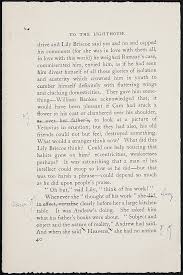 TO THE LIGHTHOUSE
drive and Lily Briscoe said yes and no and capped
his comments (for she was in love with them all,
in love with this world) he weighed Ramsay's case,
commiserated him, envied him, as if he had seen
him divest himself of all those glories of isolation
and austerity which crowned him in youth to
cumber himself definitely with fluttering wings
and clucking domesticities. They gave him
something—William Bankes acknowledged that; it
would have been pleasant if Cam had stuck a
flower in his coat or clambered over his shoulder,
as over her father's, to look at a picture of
Vesuvius in eruption; but they had also, his old
friends could not but feel, destroyed something.
What would a stranger think now? What did this
Lily Briscoe think? Could one help noticing that
habits grew on him? eccentricities, weaknesses
perhaps? It was astonishing that a man of his
intellect could stoop so low as he did—but that
was too harsh a phrase—could depend so much
as he did upon people's praise.
"Oh but," said Lily, "think of his work!"
Whenever she "thought of his work" she
always saw clearly before her a large kitchen
table. It was Andrew's doing. She asked him
what his father's books were about. "Subject and
object and the nature of reality," Andrew had said.
And when she said "Heavens," she had no notion
40